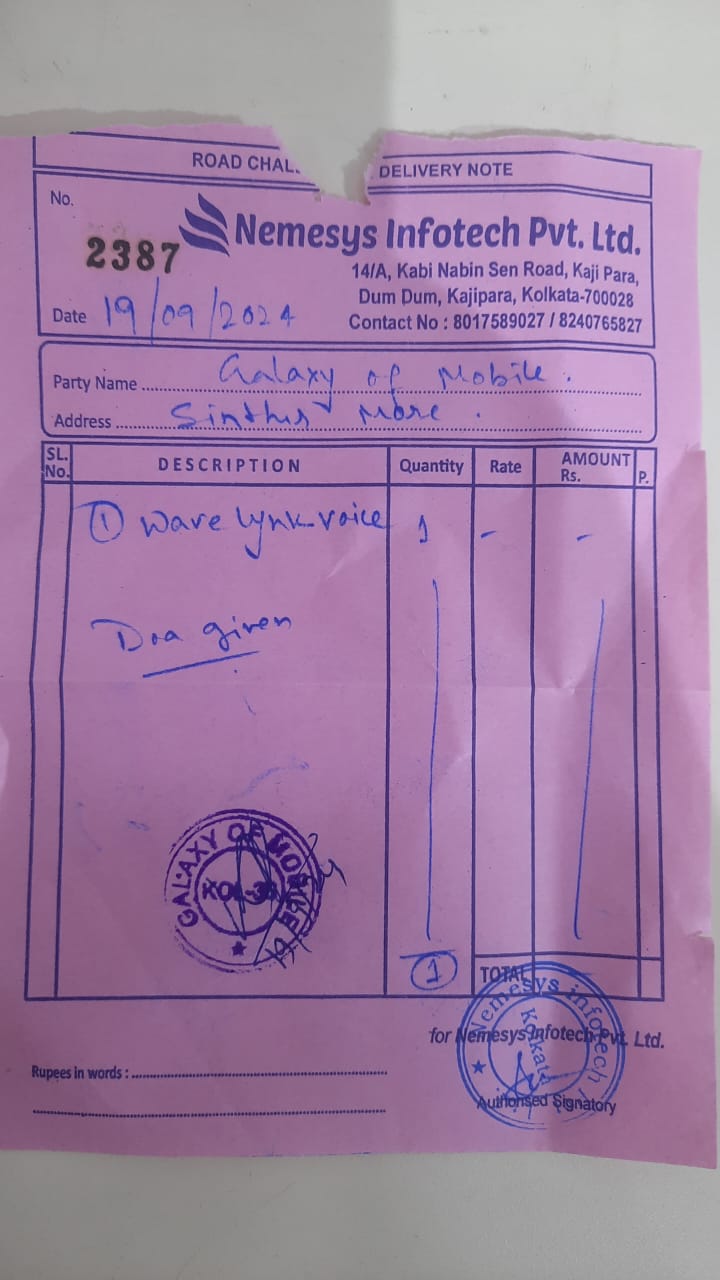 ROAD CHAL DELIVERY NOTE
No.
2387
Nemesys Infotech Pvt. Ltd.
14/A, Kabi Nabin Sen Road, Kaji Para,
Dum Dum, Kajipara, Kolkata-700028
Contact No : 8017589027 / 8240765827
Date 19/09/2024
Party Name Galaxy of Mobile.
Address More.
SL. No. DESCRIPTION Quantity Rate AMOUNT Rs. P.
① Wave lynk voice 1 - -
Doa given
GALAXY OF MOBILE
①
TOTAL
Nemesys infotech
Kolkata
for Nemesys Infotech Pvt. Ltd.
Rupees in words :
Authorised Signatory